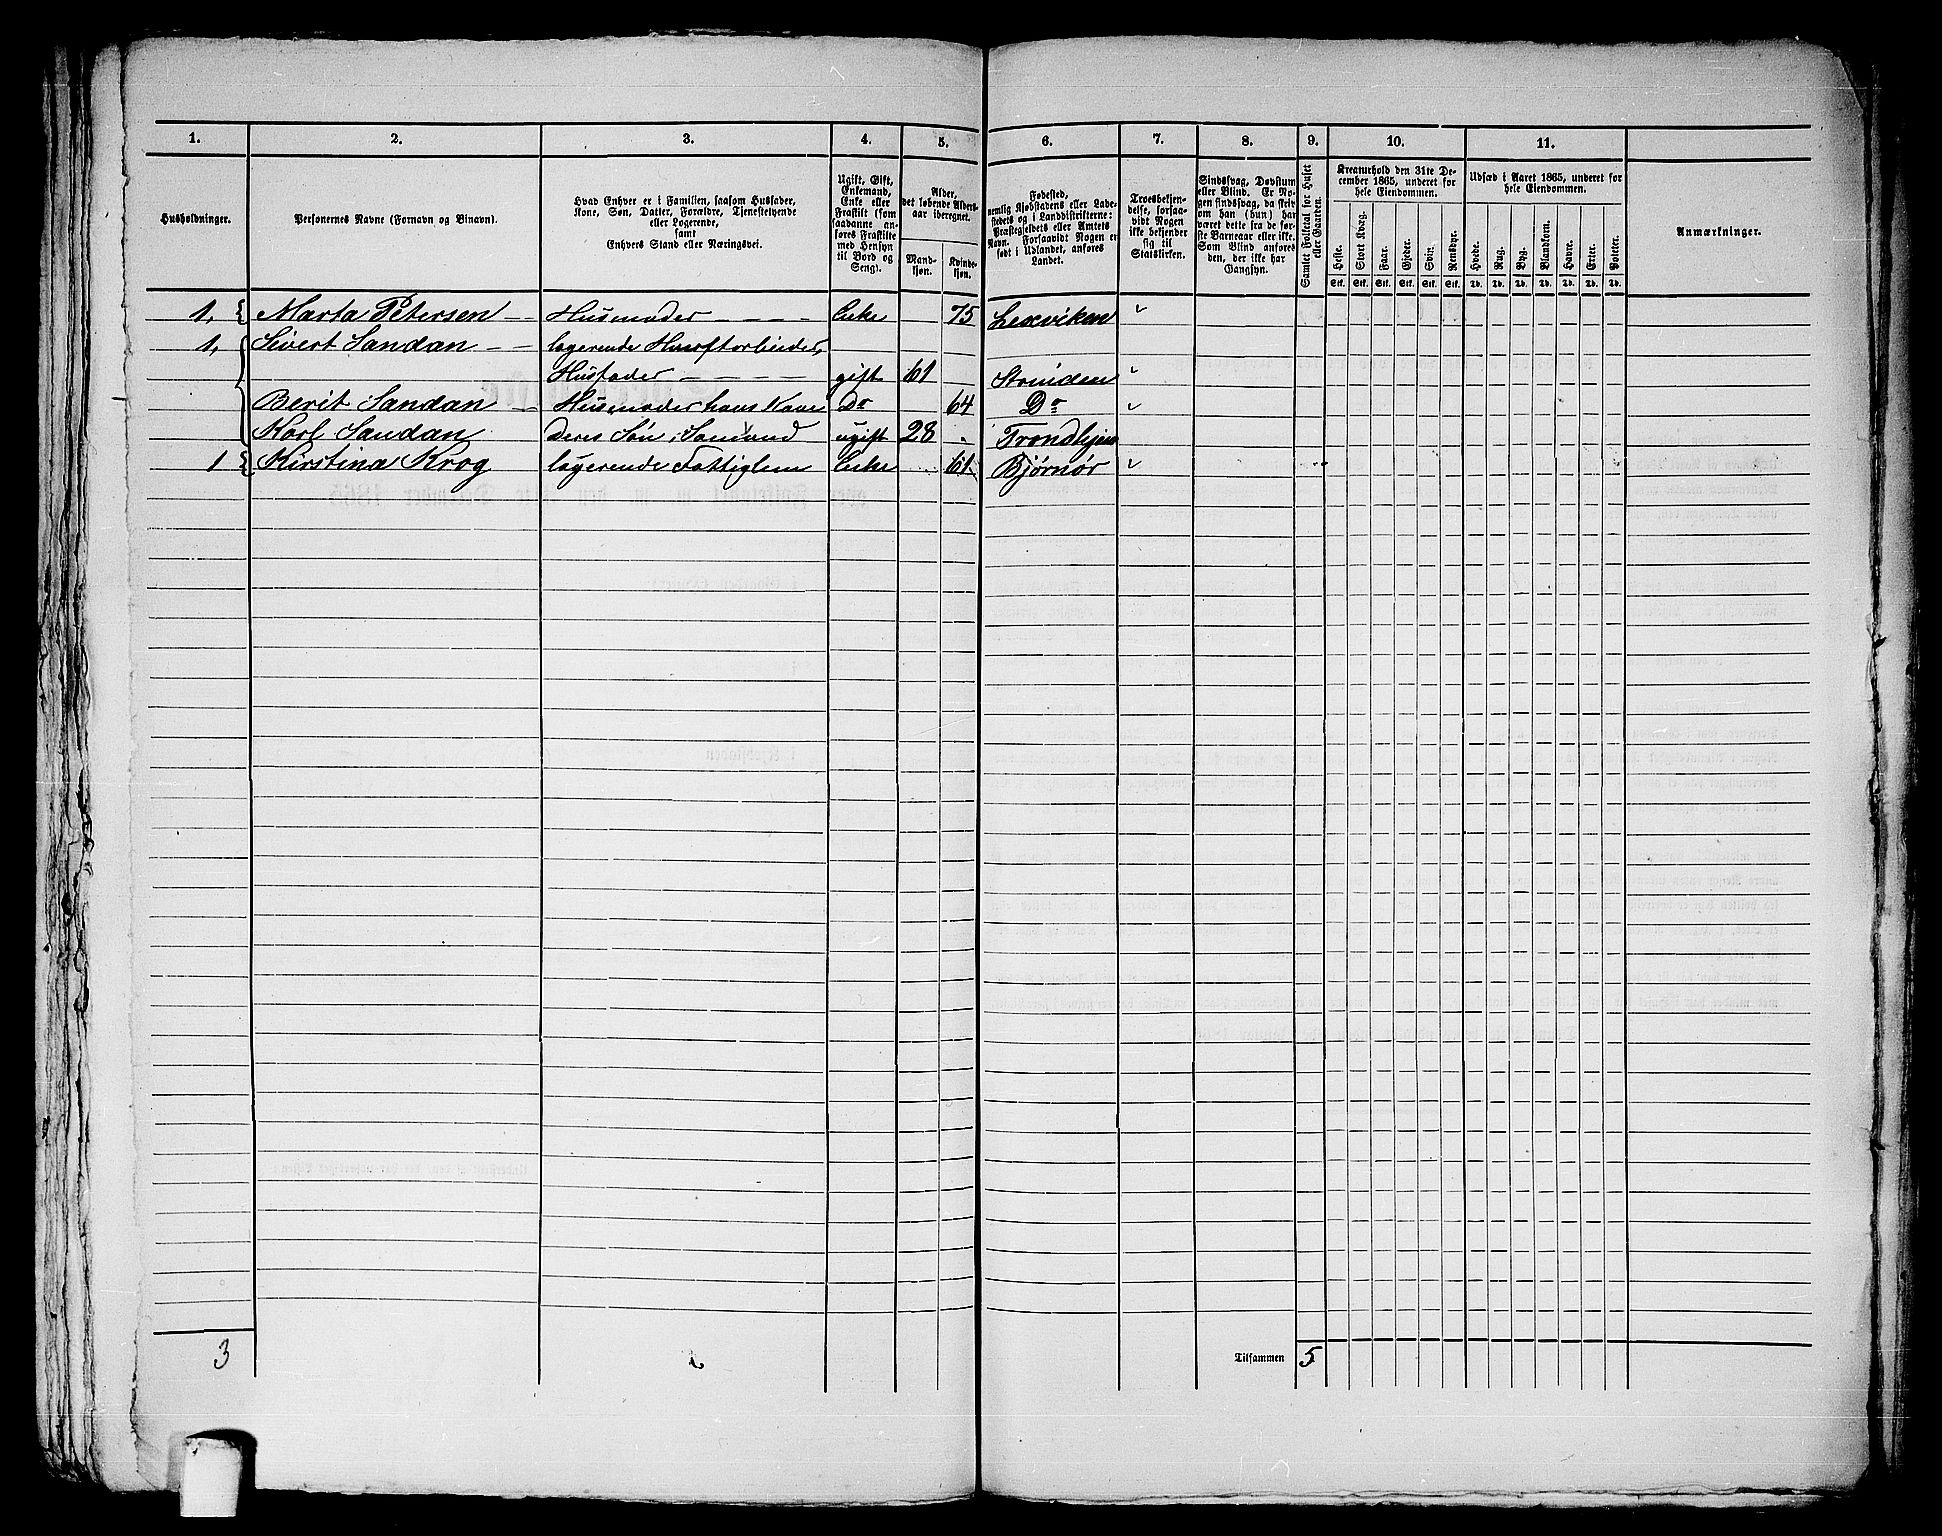 1. 2. 3. 4. 5. 6. 7. 8. 9. 10. 11.
Husholdninger.
Personernes Navne (Fornavn og Binavn).
Hvad Enhver er i Familien, saasom Husfader,
Kone, Søn, Datter, Forældre, Tjenestetyende
eller Logerende,
samt
Enhvers Stand eller Næringsvei.
Ugift, Gift,
Enkemand,
Enke eller
Fraskilt (som
saadanne anføres
Fraskilte
med Hensyn
til Bord og
Seng).
Alder,
det løbende Aldersaar
iberegnet.
Mandkjøn.
Kvindekjøn.
Fødested,
nemlig Kjøbstadens eller Ladestedets
og i Landdistrikterne:
Præstegjeldets eller Amtets
Navn. Forsaavidt Nogen er
født i Udlandet, anføres
Landet.
Troesbekjendelse,
forsaavidt
Nogen
ikke bekjender
sig til
Statskirken.
Sindssvag, Døvstum
eller Blind. Er Nogen
sindssvag, da skriv
om han (hun) har
været dette fra de første
Barneaar eller ikke.
Som Blind anføres
den, der ikke har
Gangsyn.
Samlet Folketal for Huset
eller Gaarden.
Kreaturhold den 31te December
1865, underet for
hele Eiendommen.
Heste. Stort Kvæg. Faar. Gjeder. Svin. Rensdyr.
Stk. Stk. Stk. Stk. Stk. Stk.
Udsæd i Aaret 1865, underet for
hele Eiendommen.
Hvede. Rug. Byg. Blandkorn. Havre. Erter. Potter.
Td. Td. Td. Td. Td. Td. Td.
Anmærkninger.
1. Marta Petersen Husmoder Enke 75 Lexviken "
1. Sivert Sandan logerende
Husfader gift 61 Strinden "
Berit Sandan Husmoder hans Kone Do 64 Do "
Karl Sandan Deres Søn, Sømand ugift 28 Trondhjem
1 Kirstina Krog logerende Fattiglem Enke 61 Bjørnør "
3 Tilsammen 5